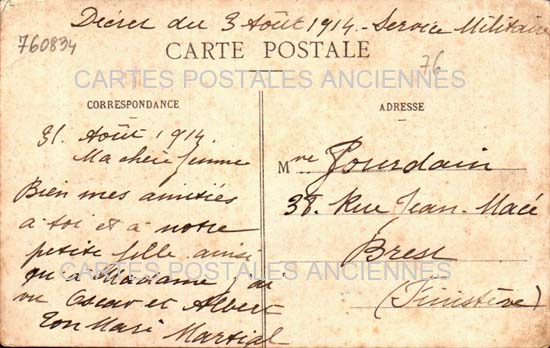 Décret du 3 Août 1914 - Service Militaire
760834
CARTE POSTALE
76
CARTES POSTALES ANCIENNES
CORRESPONDANCE
31. Août 1914.
Ma chère femme
Bien mes amitiés
à toi et à notre
petite fille ainsi
qu'à Madame j'ai
vu Oscar et Albert
Ton Mari Martial
ADRESSE
Mme Jourdain
38. Rue Jean-Macé
Brest
(Finistère)
CARTES POSTALES ANCIENNES